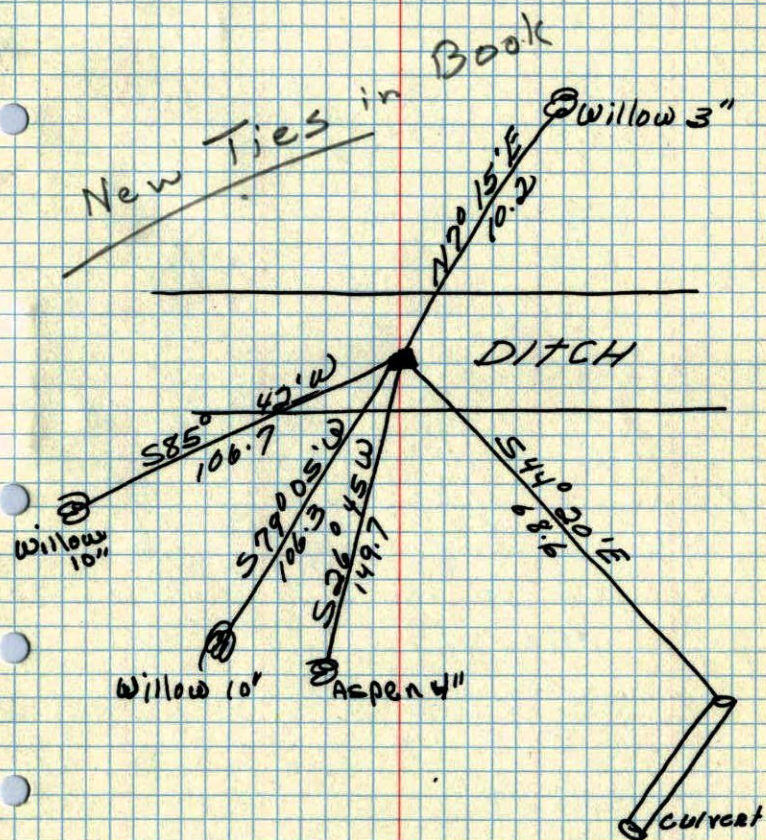 New Ties in Book
Willow 3"
N7° 15'E
10.2
DITCH
S85° 42'W
106.7
Willow
10"
S79° 05'W
106.3
Willow 10"
S26° 45W
149.7
Aspen 4"
S44° 20'E
68.6
Culvert